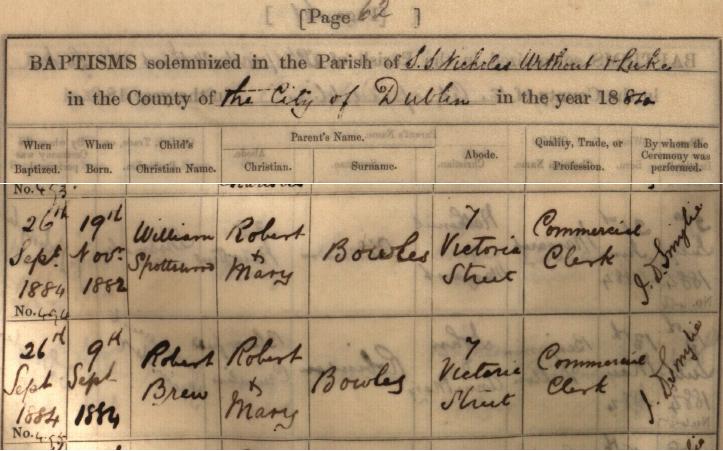 [Page 62 ]
BAPTISMS solemnized in the Parish of S.S Nicholas Without & Luke
in the County of the City of Dublin in the year 1884
When Baptized. When Born. Child's Christian Name. Parent's Name. Christian. Surname. Abode. Quality, Trade, or Profession. By whom the Ceremony was performed.
No. 493
26th Sept. 1884 19th Novr. 1882 William Spottswood Robert & Mary Bowles 7 Victoria Street Commercial Clerk J. D. Smylie
No. 494
26th Sept 1884 9th Sept. 1884 Robert Brew Robert & Mary Bowles 7 Victoria Street Commercial Clerk J. D. Smylie
No. 495